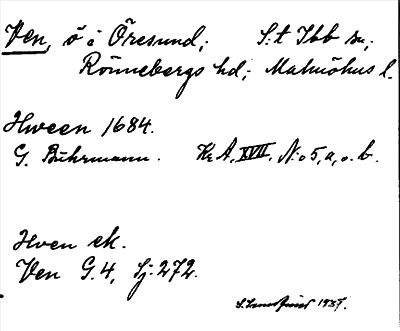 Ven, ö i Öresund; S:t Ibb sn;
Rönnebergs hd; Malmöhus l.
Hween 1684.
G. Buhrmann. Kr A. XVII. N:o 5, a, o. b.
Hven ek.
Ven G.4, Sj: 272.
1937.